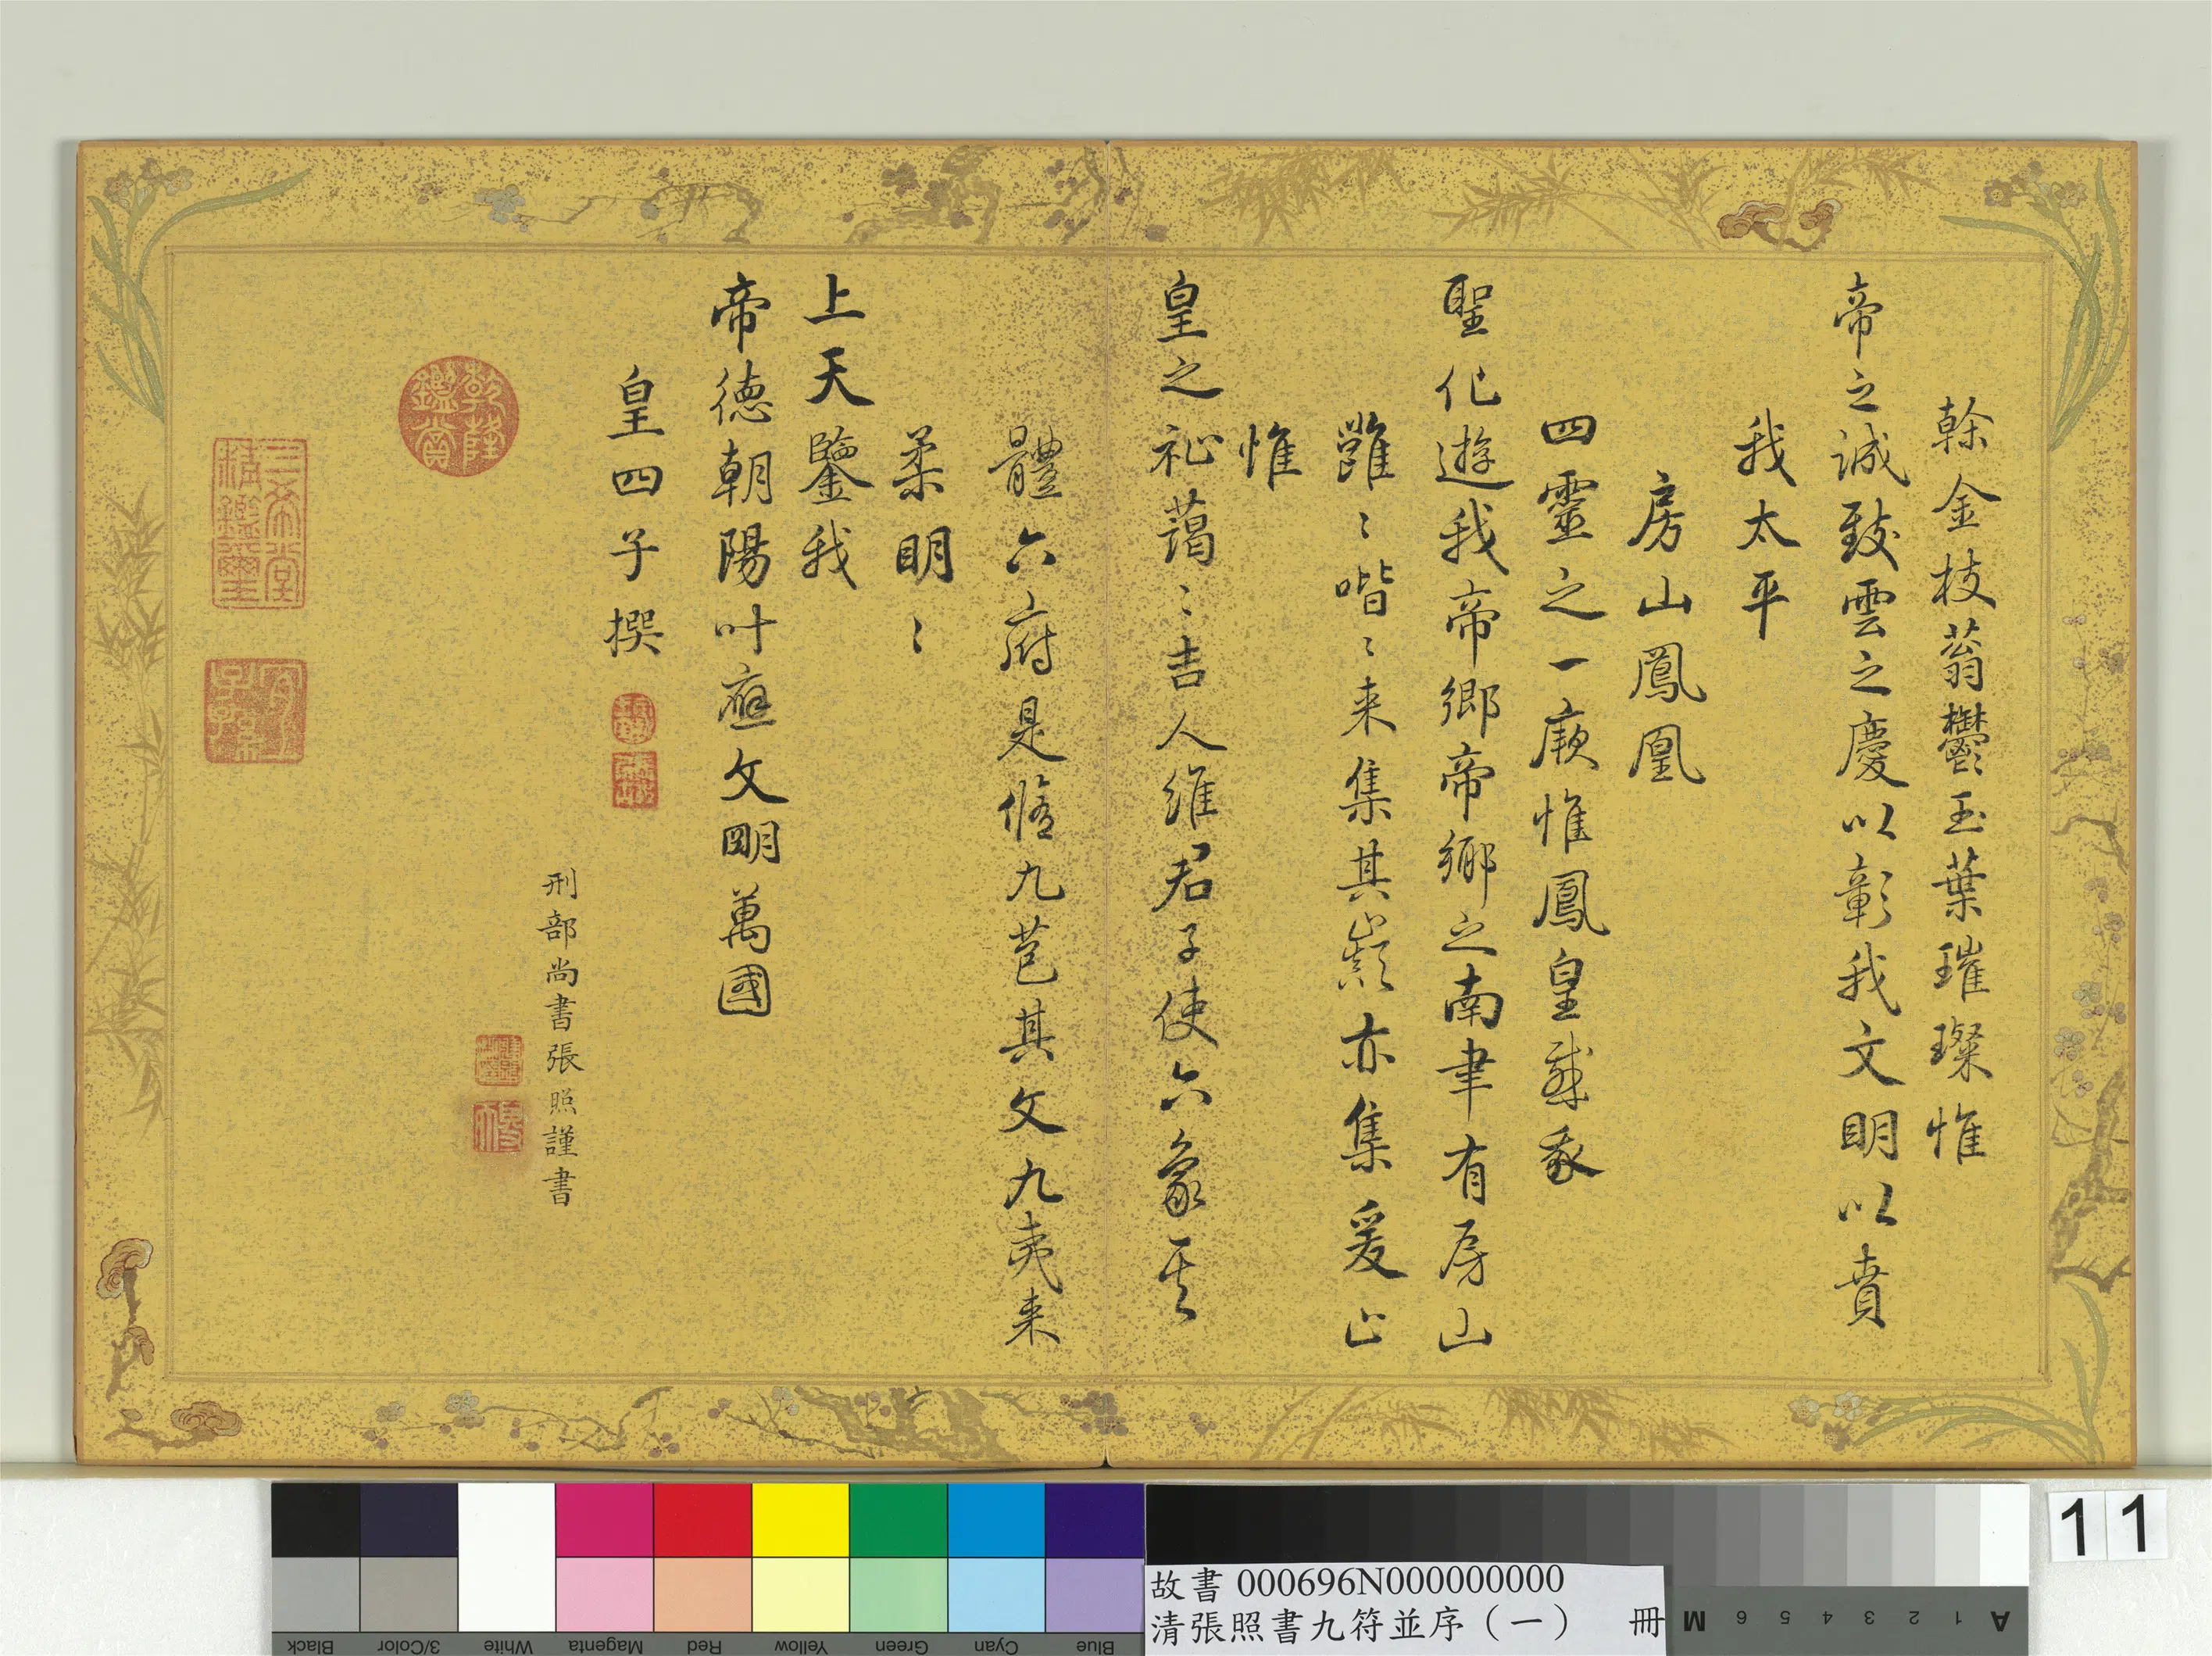 榦金枝蓊鬱玉葉璀璨惟
帝之誠致雲之慶以彰我文明以賁
我太平
房山鳳凰
四靈之一厥惟鳳皇感
聖化遊我帝鄉帝鄉之南聿有房山
雝〻喈〻来集其巔亦集爰止
惟
皇之祉藹〻吉人維君子使六象其
體六府是脩九苞其文九夷来
柔明〻
上天鑒我
帝德朝陽叶應文明萬國
皇四子撰
刑部尚書張照謹書
乾隆鑑賞
三希堂精鑑璽
宜子孫
Black
3/Color
White
Magenta
Red
Yellow
Green
Cyan
Blue
故書 000696N000000000
清張照書九符並序（一） 冊
M 6 5 4 3 2 1 A
11